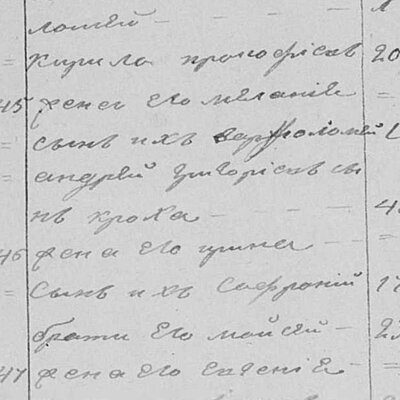 лошей -
= Кирила прокофіевъ 20
45 жена Его меланіѣ =
= сынъ ихъ варфоломей
= андрѣй григоріевъ сы
нъ кроха -
46 жена Его ирина - =
= Сынъ ихъ Софроній 17
братъ Его мойсѣй -
47 жена Его Евгеніѣ - =